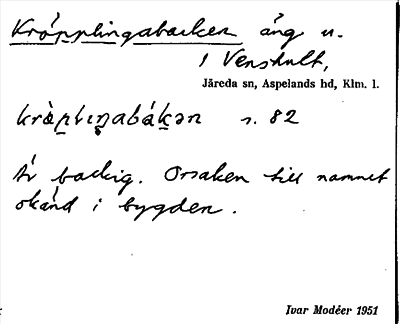 Kröpplingabacken äng u.
/ Venshult,
Järeda sn, Aspelands hd, Klm. l.
s. 82
Är backig. Orsaken till namnet
okänd i bygden.
Ivar Modéer 1951